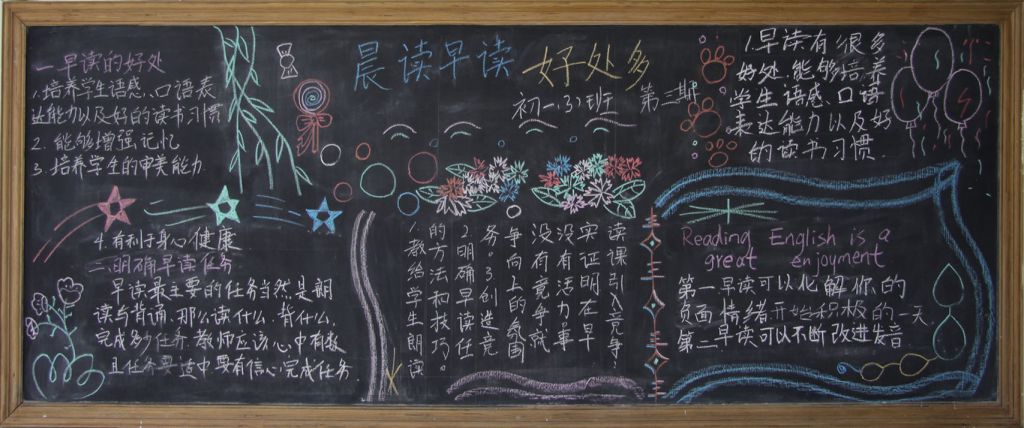 晨读早读 好处多
初一.(3)班 第三期
一.早读的好处
1.培养学生语感、口语表
达能力以及好的读书习惯
2. 能够增强记忆
3. 培养学生的审美能力
4. 有利于身心健康
二.明确早读任务
早读最主要的任务当然是朗
读与背诵，那么读什么，背什么，
完成多少任务.教师应该心中有数
且任务要适中要有信心完成任务
1.教给学生朗读
的方法和技巧。
2明确早读任
务。3创进竞
争向上的氛围
没有竞争就
没有活力事
实证明在早
读课引入竞争
1.早读有很多
好处.能够培养
学生语感、口语
表达能力以及好
的读书习惯.
Reading English is a
great enjoyment
第一早读可以化解你的
负面情绪开始积极的一天
第二早读可以不断改进发音